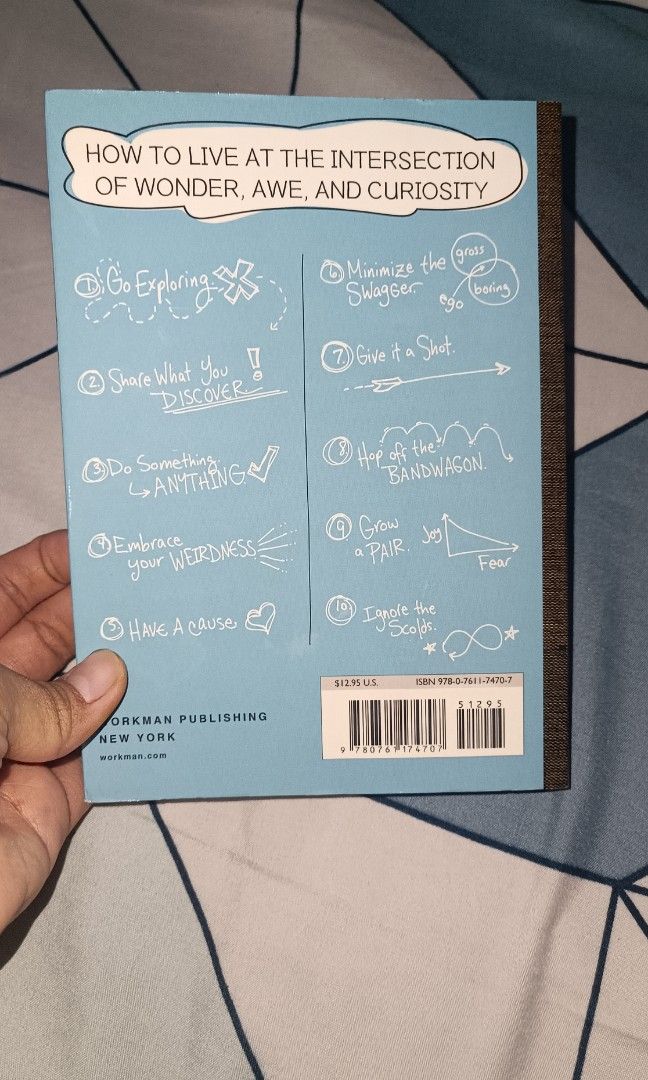 HOW TO LIVE AT THE INTERSECTION
OF WONDER, AWE, AND CURIOSITY
1. Go Exploring
2. Share What You
DISCOVER!
3. Do Something.
ANYTHING
4. Embrace
your WEIRDNESS
5. HAVE A CAUSE
6. Minimize the
SWAGGER.
gross
ego
boring
7. Give it a Shot.
8. Hop off the
BANDWAGON.
9. Grow
a PAIR.
Joy
Fear
10. Ignore the
Scolds.
$12.95 U.S. ISBN 978-0-7611-7470-7
51295
9 780761 174707
ORKMAN PUBLISHING
NEW YORK
workman.com